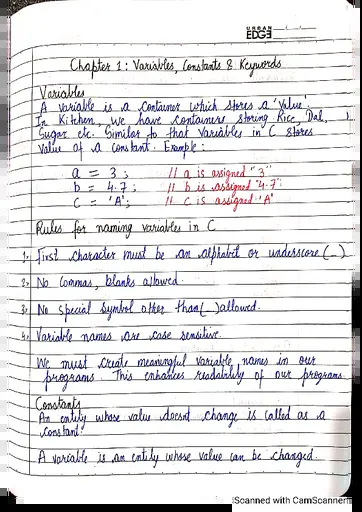 URBAN
EDGE
Chapter 1: Variables, Constants & Keywords
Variables
A variable is a container which stores a 'value'.
In Kitchen, we have containers storing Rice, Dal,
Sugar etc. Similar to that variables in C stores
value of a constant. Example:
a = 3; // a is assigned "3"
b = 4.7; // b is assigned "4.7"
c = 'A'; // c is assigned 'A'
Rules for naming variables in C
1. First character must be an alphabet or underscore (_)
2. No commas, blanks allowed.
3. No special symbol other than (_) allowed.
4. Variable names are case sensitive.
We must create meaningful variable names in our
programs. This enhances readability of our programs
Constants
An entity whose value doesnt change is called as a
constant.
A variable is an entity whose value can be changed.
Scanned with CamScanner